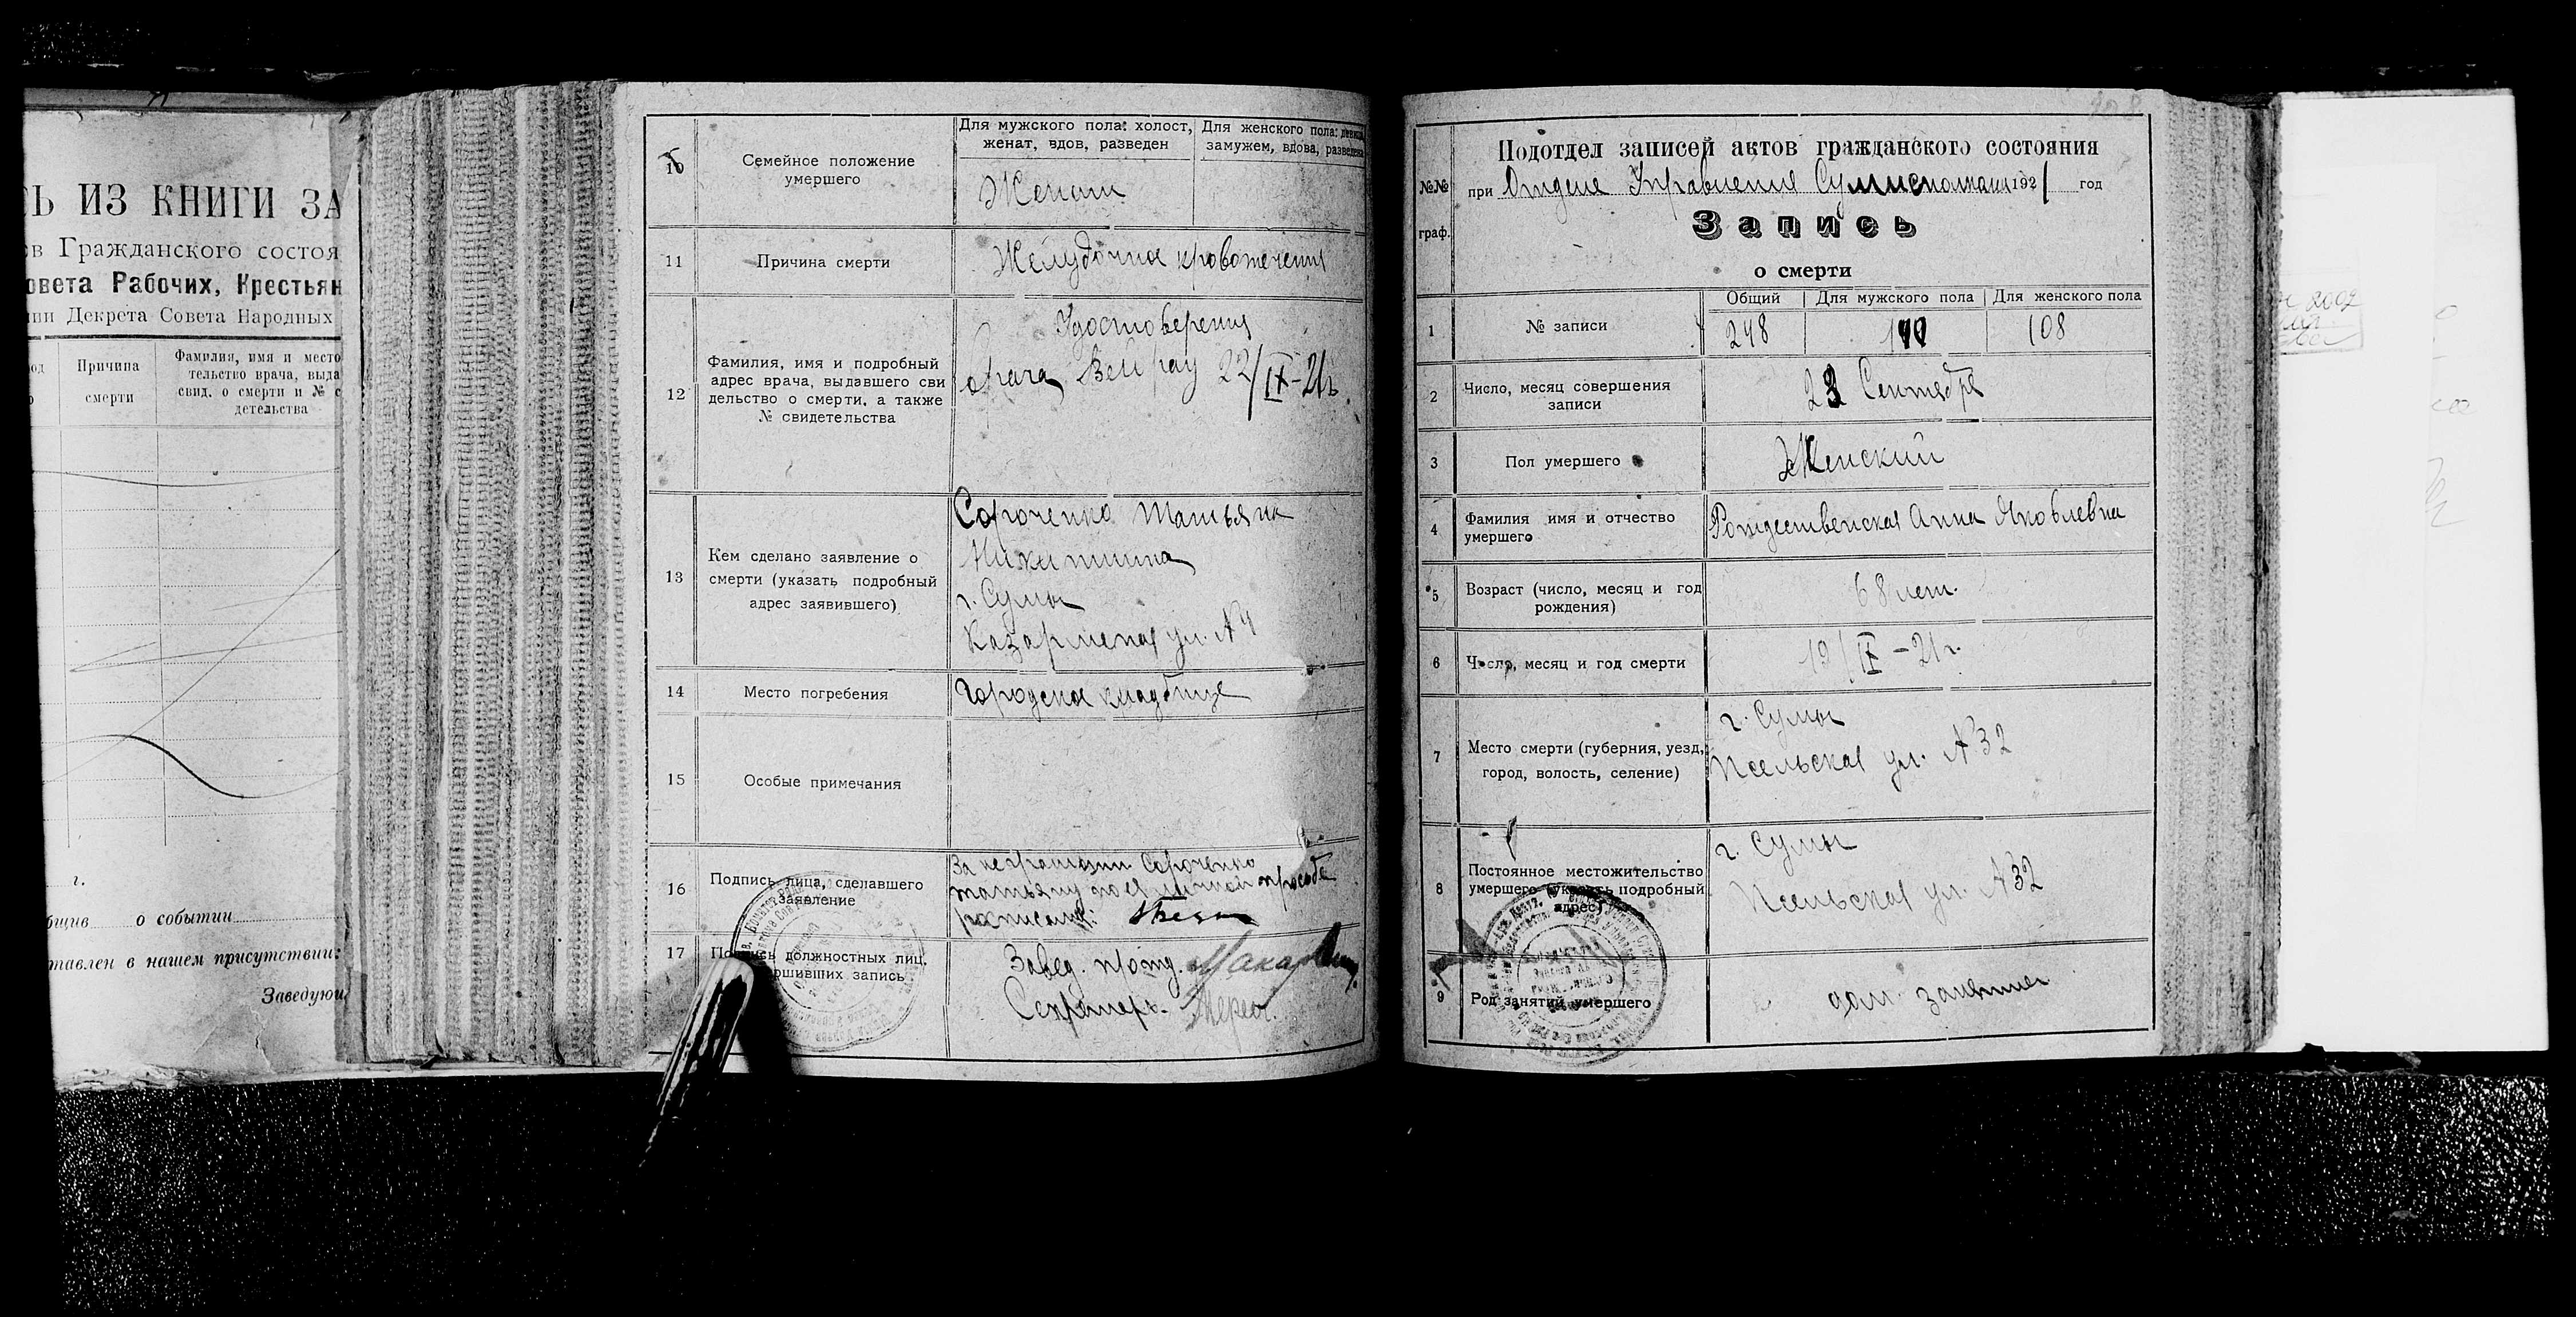 Ь ИЗ КНИГИ ЗА
ов Гражданского состоя
овета Рабочих, Крестьян
нии Декрета Совета Народных
Причина
смерти
Фамилия, имя и место
тельство врача, выда
свид. о смерти и № с
детельства
г.
бщив о событии
тавлен в нашем присутствии:
Заведую
10
Семейное положение
умершего
Для мужского пола: холост,
женат, вдов, разведен
Для женского пола: девица
замужем, вдова, разведена
Женат
11
Причина смерти
Желудочное кровотечения
12
Фамилия, имя и подробный
адрес врача, выдавшего сви
дельство о смерти, а также
№ свидетельства
Удостоверения
врача 22/IX-21г.
13
Кем сделано заявление о
смерти (указать подробный
адрес заявившего)
Сороченко Татьяна
Никитишна
г. Сумы
Казарменая ул. №4
14
Место погребения
Городское кладбище
15
Особые примечания
16
Подпись лица, сделавшего
заявление
За неграмотн. Сороченко
татьяну по ея личной просьбе
росписался:
17
Подпись должностных лиц,
вершивших запись
Завед. п/отд.
Секретарь
№№
граф.
Подотдел записей актов гражданского состояния
при Отделе Управления Сумисполкома 1921 год
Запись
о смерти
1
№ записи
Общий
Для мужского пола
Для женского пола
248
108
2
Число, месяц совершения
записи
Сентября
3
Пол умершего
Женский
4
Фамилия имя и отчество
умершего
Рождественская Анна Яковлевна
5
Возраст (число, месяц и год
рождения)
68 лет.
6
Число, месяц и год смерти
19/IX-21г.
7
Место смерти (губерния, уезд,
город, волость, селение)
г. Сумы
Псельская ул. №32
8
Постоянное местожительство
умершего (указать подробный
адрес)
г. Сумы
Псельская ул. №32
9
Род занятий умершего
дом. занятие